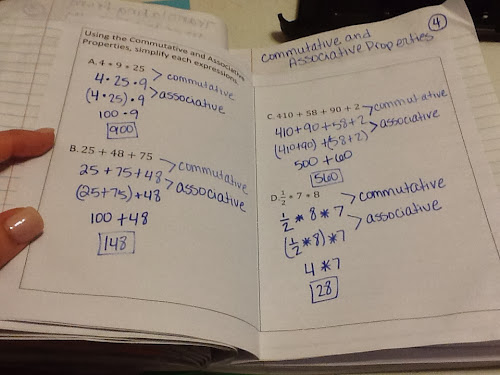 Using the Commutative and Associative
Properties, simplify each expression.
A. 4 * 9 * 25
4 · 25 · 9 > commutative
(4 · 25) · 9 > associative
100 · 9
900
B. 25 + 48 + 75
25 + 75 + 48 > commutative
(25+75) + 48 > associative
100 + 48
148
4
Commutative and
Associative Properties
C. 410 + 58 + 90 + 2
410 + 90 + 58 + 2 > commutative
(410+90) + (58+2) > associative
500 + 60
560
D. 1/2 * 7 * 8
1/2 * 8 * 7 > commutative
(1/2 * 8) * 7 > associative
4 * 7
28